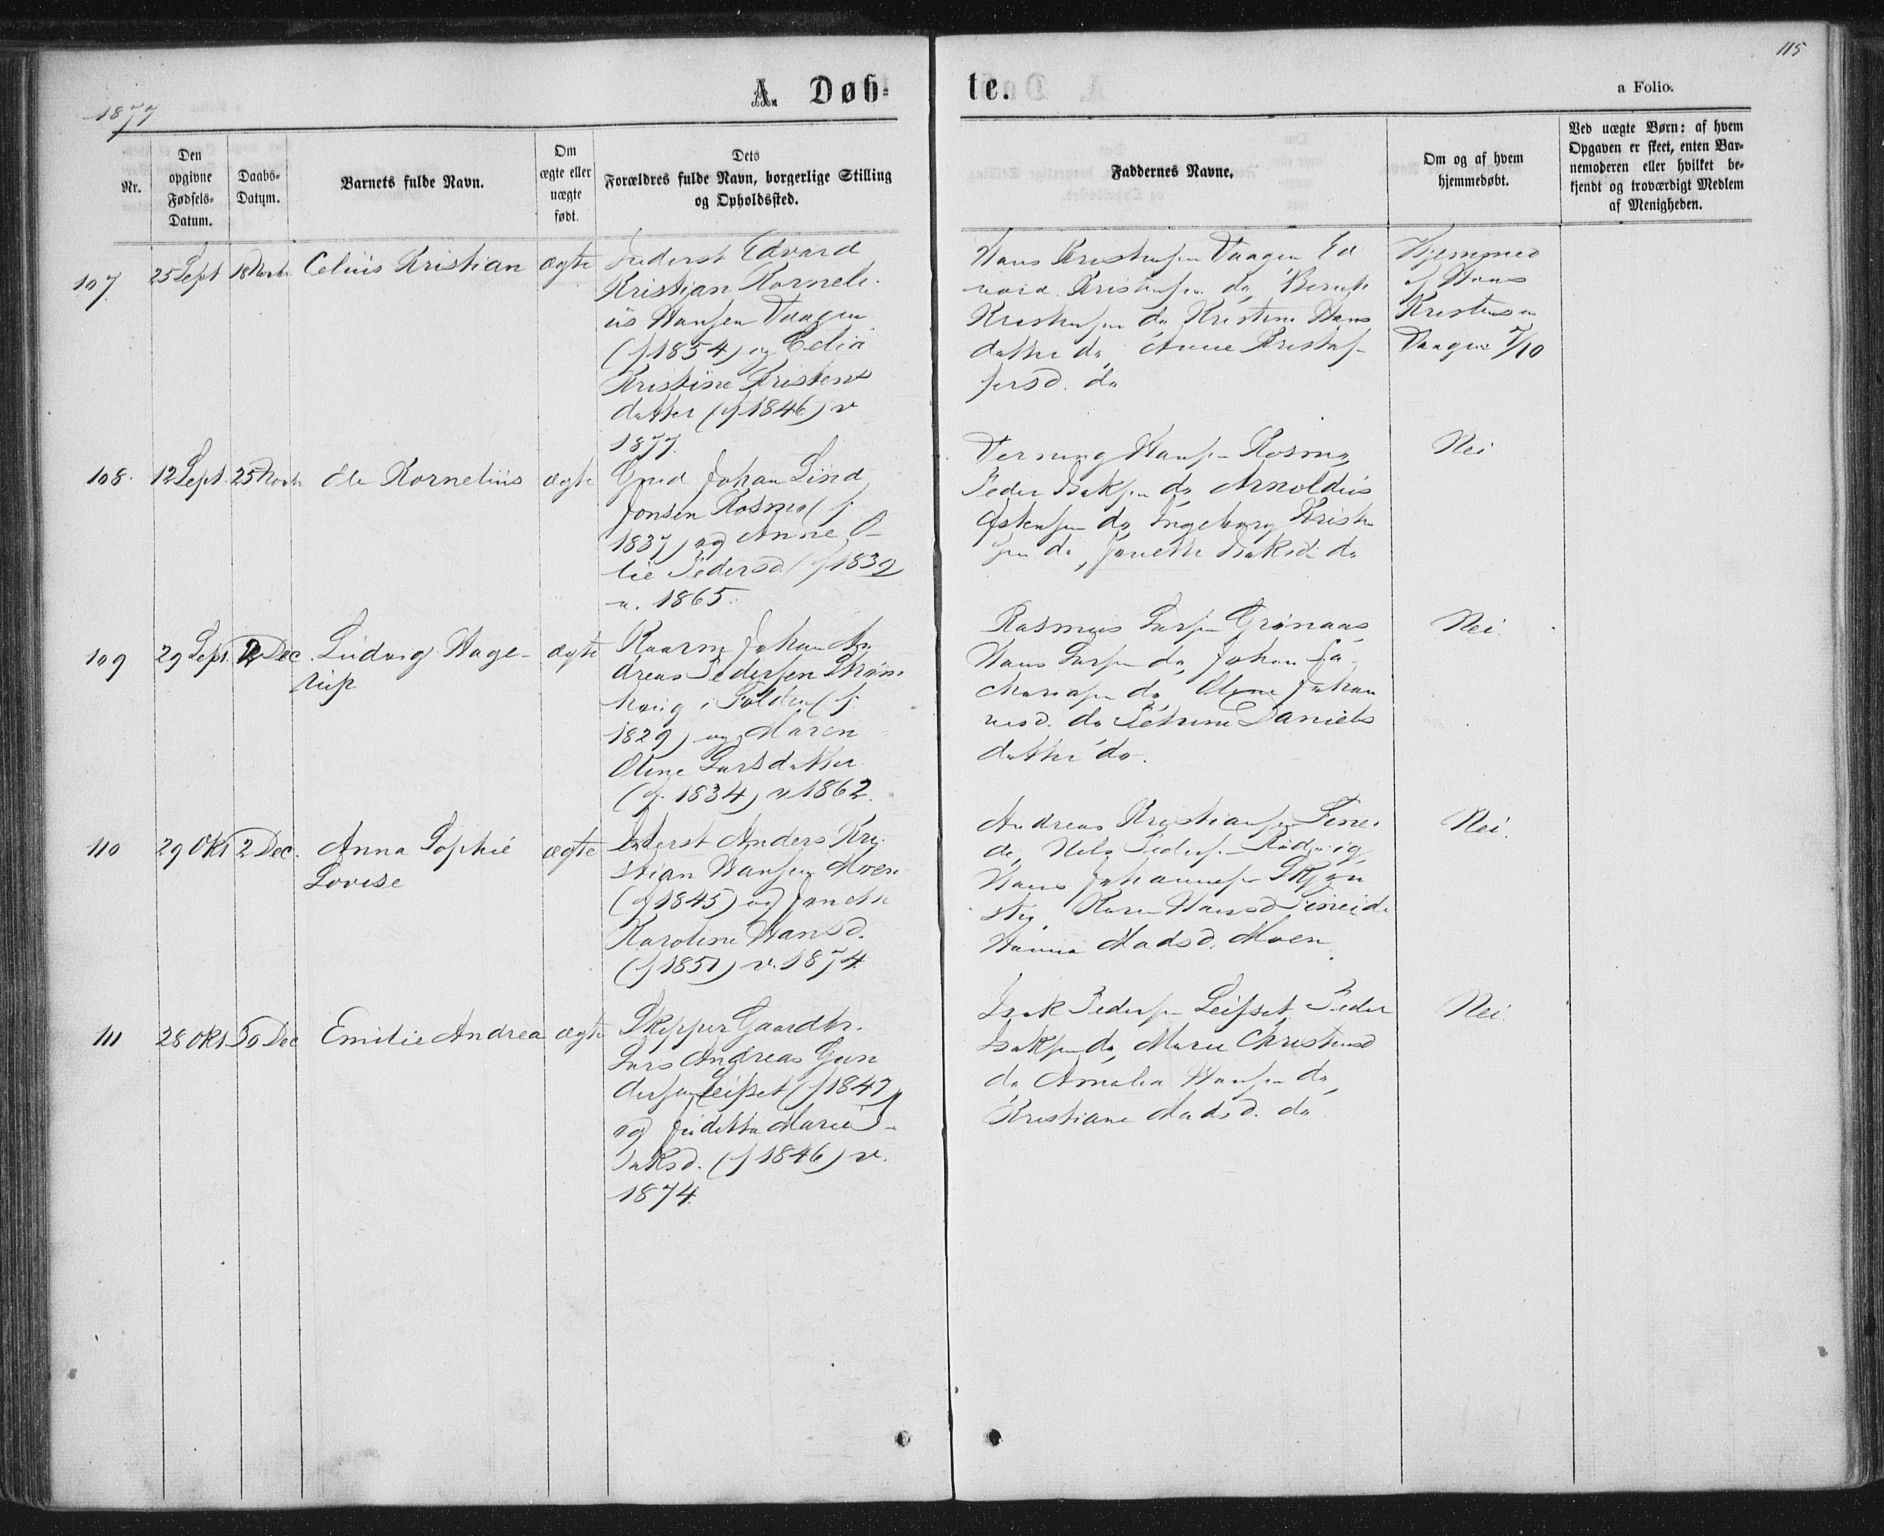 115
1877
A. Døb-
te.
a Folio.
Nr.
Den
opgivne
Fødsels-
Datum.
Daabs-
Datum.
Barnets fulde Navn.
Om
ægte eller
uægte
født.
Dets
Forældres fulde Navn, borgerlige Stilling
og Opholdssted.
Faddernes Navne.
Om og af hvem
hjemmedøbt.
Ved uægte Børn: af hvem
Opgaven er skeet, enten Bar-
nemoderen eller hvilket be-
kjendt og troværdigt Medlem
af Menigheden.
107
25 Sept
18 Novbr
Celius Kristian
ægte
Inderst Edvard
Kristian Korneli-
us Hansen Vaagen
(f 1854) og Celia
Kristine Kristens
datter (f 1846) v
1877.
Hans Kristensen Vaagen Ed
vard Kristensen do
Kristensen do Kristine Hans
datter do Anne Kristof-
fersd. do
Hjemmed
af Hans
Kristensen
Vaagen 7/10
108.
12 Sept.
25 Novbr
Ole Kornelius
ægte
Gmd Johan Lind
Jonsen Rosmo (f
1837) og Anne O-
lie Pedersd (f 1839
v. 1865.
Hansen Rosmo,
Peder Isaksen do Arnoldus
do Ingeborg
do, Janette Isaksd do
Nei
109
29 Sept.
2 Dec
Ludvig Hage-
rup
ægte
Kaarm Johan An
dreas Pedersen Strøm
haug i Folden (f.
1829) og Maren
Oline Larsdatter
(f. 1834) v 1862.
Rasmus Larsen Grønaas
Hans Larsen do, Johan Za-
chariasen do, Johan
nesd. do Petrine Daniels
datter do.
Nei.
110
29 Okt
2 Dec.
Anna Sophie
Lovise
ægte
Inderst Anders Kri-
stian Hansen Moen
(f 1845) og Janette
Karoline Hansd.
(f 1851) v. 1874
Andreas Kristiansen Finei-
de, Nels Pedersen
Hans Johannesen Skjøn
stø, Karen Hansd Fineide
Hanna Madsd. Moen
Nei.
111
28 Okt
30 Dec
Emilie Andrea
ægte
Skipper Gaardbr.
Lars Andreas Gun
dersen Leifset (f 1847)
og Juditha Marie I-
saksd. (f 1846) v.
1874.
Isak Pedersen Leifset, Peder
Isaksen do, Marie Christensd
do Amalia Hansen do,
Kristiane Madsd. do
Nei.